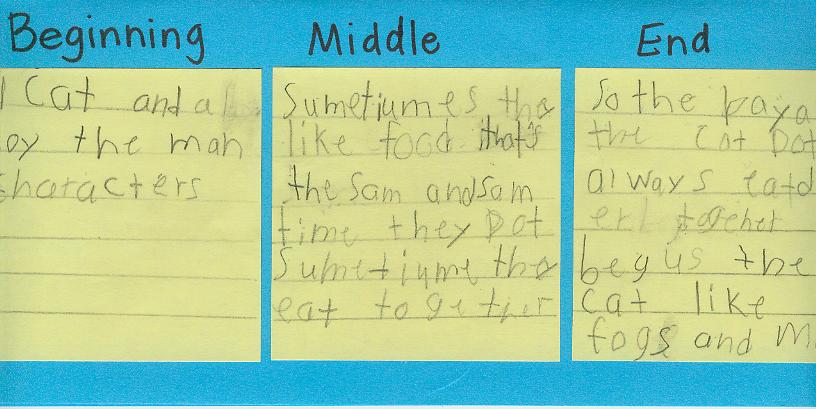 Beginning
Cat and a
oy the man
characters
Middle
Sumetiumes tha
like food that's
the Sam andsam
time they Dot
Sumetiyme tha
eat together
End
So the baya
the Cat Dot
always eatd
togehet
begus the
cat like
fogs and M